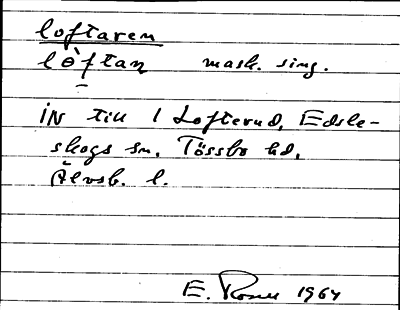 loftaren
lòftan mask. sing.
IN till 1 Lofterud, Edsle-
skogs sn, Tössbo hd,
Älvsb. l.
E. Rosell 1964